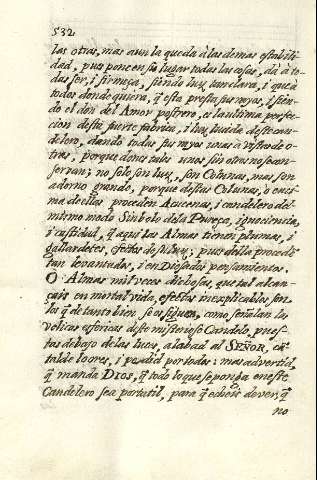 532
las otras, mas aun la queda à las demas estabili-
dad, pues pone en su lugar todas las cosas, dà à to-
das ser, i firmeça, siendo luz tan clara, i que à
todos donde quiera, q̃ esta presta sus rayos, i sien-
do el don del Amor postrero, es la ultima perfec-
cion desta fuerte fabrica, i luz lucida deste can-
delero, dando todas sus rayos unas à vista de o-
tras, porque dones tales unos sin otros no se an-
serran; no solo son luz, son Colunas, mas son
adorno grande, porque destas Colunas, o enci-
ma de ellas proceden Açucenas, i candelero del
mismo modo Simbolo de la Pureça, ignociencia,
i castidad, q̃ aqui las Almas tienen plumas, i
gallardetes, efectos de su luz; pues della procedē
tan levantados, i en Diosados pensamientos.
O Almas mil veces dichosas, que tal alcan-
çais en mortal vida, efectos inexplicables son
los q̃ de tanto bien se os siguen, como señalan las
voticas esfericas deste misterioso Candelo, pues-
tas debajo de las luces, alabad al SEÑOR, can-
talde loores, i pedid por todos: mas advertid,
q̃ manda DIOS, q̃ todo lo que se ponga en este
Candelero sea portatil, para q̃ echeis de ver, q̃
no